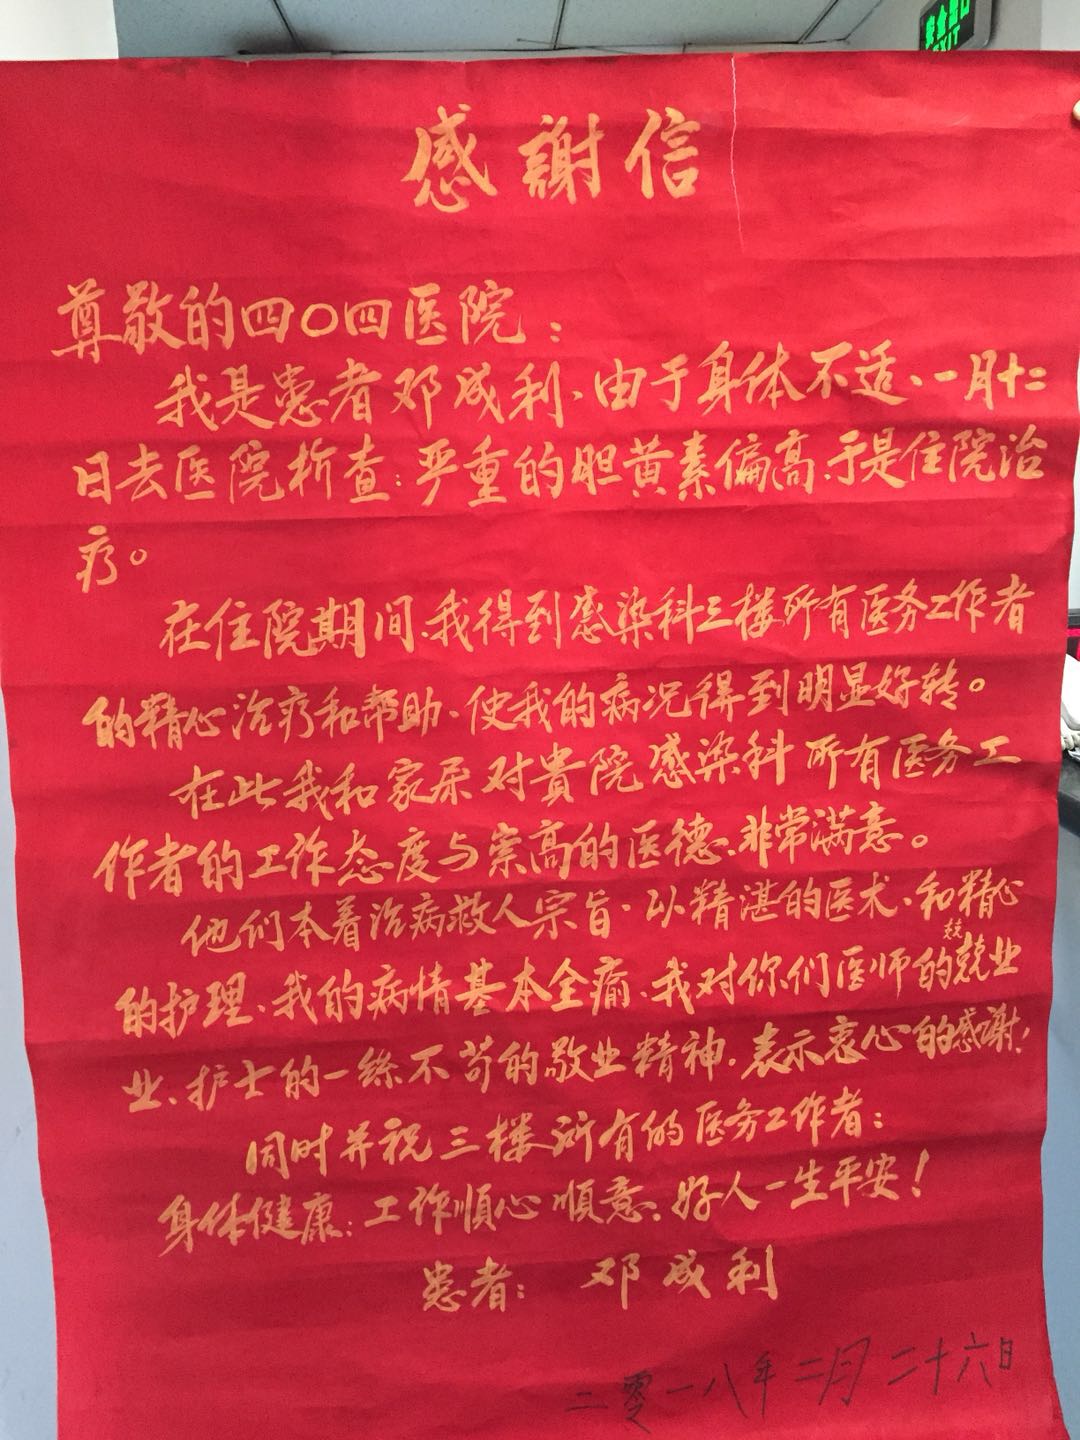 EXIT
感謝信
尊敬的四〇四医院：
我是患者邓成利、由于身体不适、一月十二
日去医院析查：严重的胆黄素偏高、于是住院治
疗。
在住院期间、我得到感染科三楼所有医务工作者
的精心治疗和帮助、使我的病况得到明显好转。
在此我和家属对貴院感染科所有医务工
作者的工作态度与崇高的医德、非常满意。
他们本着治病救人宗旨、以精湛的医术、和精心
的护理、我的病情基本全痊、我对你们医师的兢业
业、护士的一练不苟的敬业精神、表示衷心的感謝！
同时并祝三楼所有的医务工作者：
身体健康；工作順心順意、好人一生平安！
患者： 邓成利
二零一八年二月二十六日